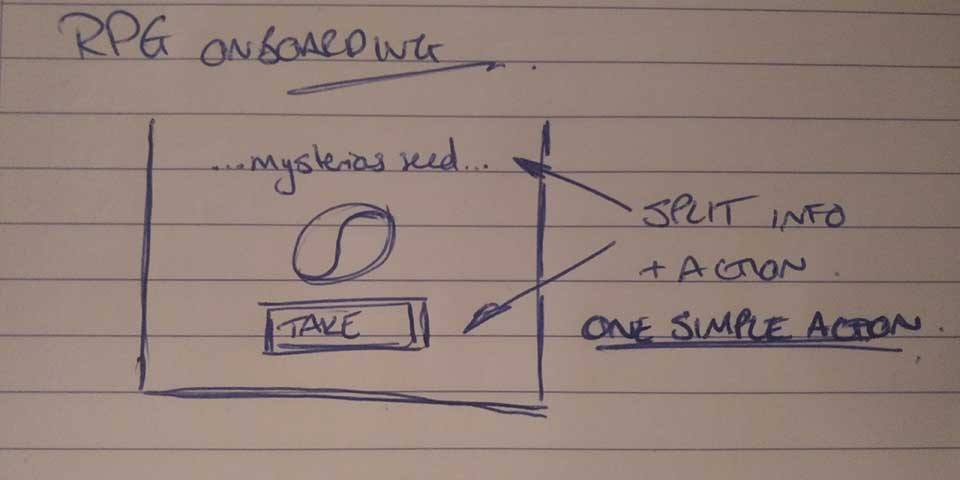 RPG ONBOARDING
...mysterios seed...
TAKE
SPLIT INFO
+ ACTION.
ONE SIMPLE ACTION.